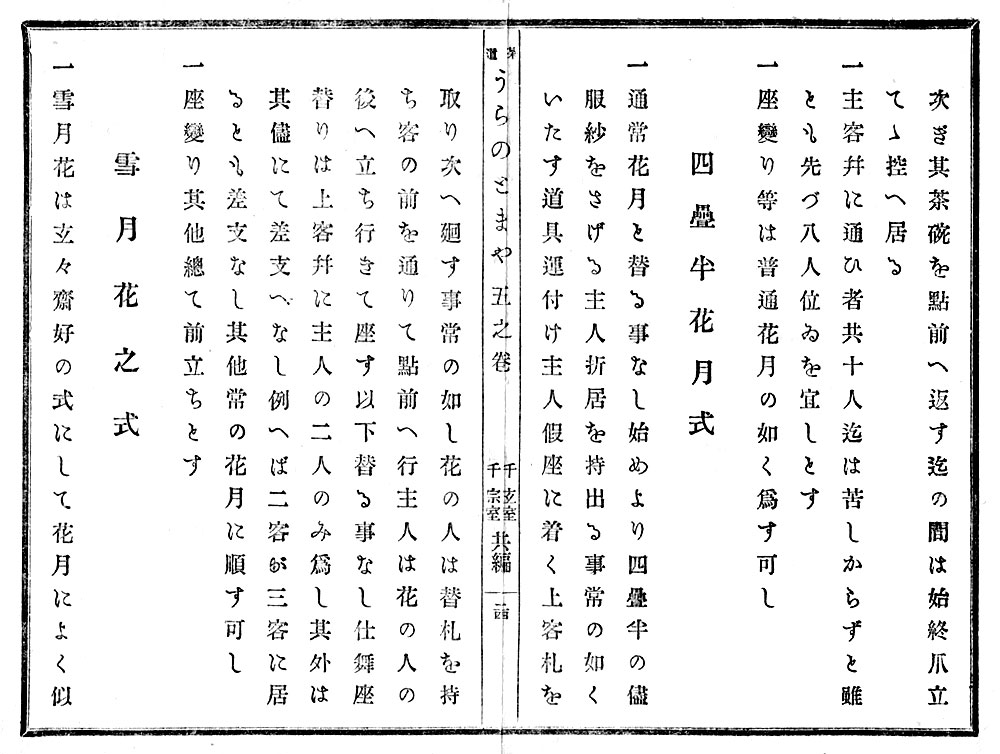 次ぎ其茶碗を點前へ返す迄の間は始終爪立
てゝ控へ居る
一主客幷に通ひ者共十人迄は苦しからずと雖
とも先づ八人位ゐを宜しとす
一座變り等は普通花月の如く爲す可し
四疊半花月式
一通常花月と替る事なし始めより四疊半の儘
服紗をさげる主人折居を持出る事常の如く
いたす道具運付け主人假座に着く上客札を
茶道 うらのとまや 五之卷 千玄室 千宗室 共編
取り次へ廻す事常の如し花の人は替札を持
ち客の前を通りて點前へ行主人は花の人の
後へ立ち行きて座す以下替る事なし仕舞座
替りは上客幷に主人の二人のみ爲し其外は
其儘にて差支へなし例へば二客が三客に居
るとも差支なし其他常の花月に順す可し
一座變り其他總て前立ちとす
雪月花之式
一雪月花は玄々齋好の式にして花月によく似